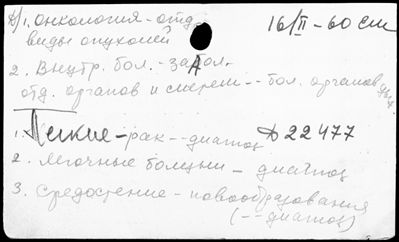 1. онкология - отд. 16/II - 60 см
виды опухолей
2. Внутр. бол. - забол.
отд. органов и систем -- бол. органов дых.
1. Легкие - рак -- диагноз Д 22477
2. легочные болезни - диагноз
3. средостение - новообразования
(-- диагноз)